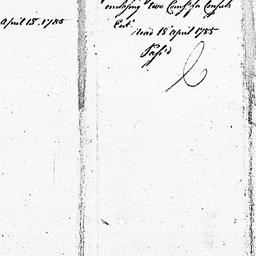 April 18. 1785
enclosing two Comss. for Consuls
Read 18 April 1785
Pass'd